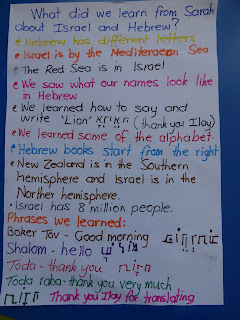 What did we learn from Sarah
about Israel and Hebrew?
Hebrew has different letters
Israel is by the Mediteraean Sea
The Red Sea is in Israel
We saw what our names look like
in Hebrew
We learned how to say and
write 'Lion' (thank you Ilay)
We learned some of the alphabet
Hebrew books start from the right
New Zealand is in the Southern
hemisphere and Israel is in the
Norther hemisphere.
Israel has 8 million people.
Phrases we learned:
Boker Tov - Good morning
Shalom - hello
Toda - thank you
Toda raba - thank you very much
Thank you Ilay for translating